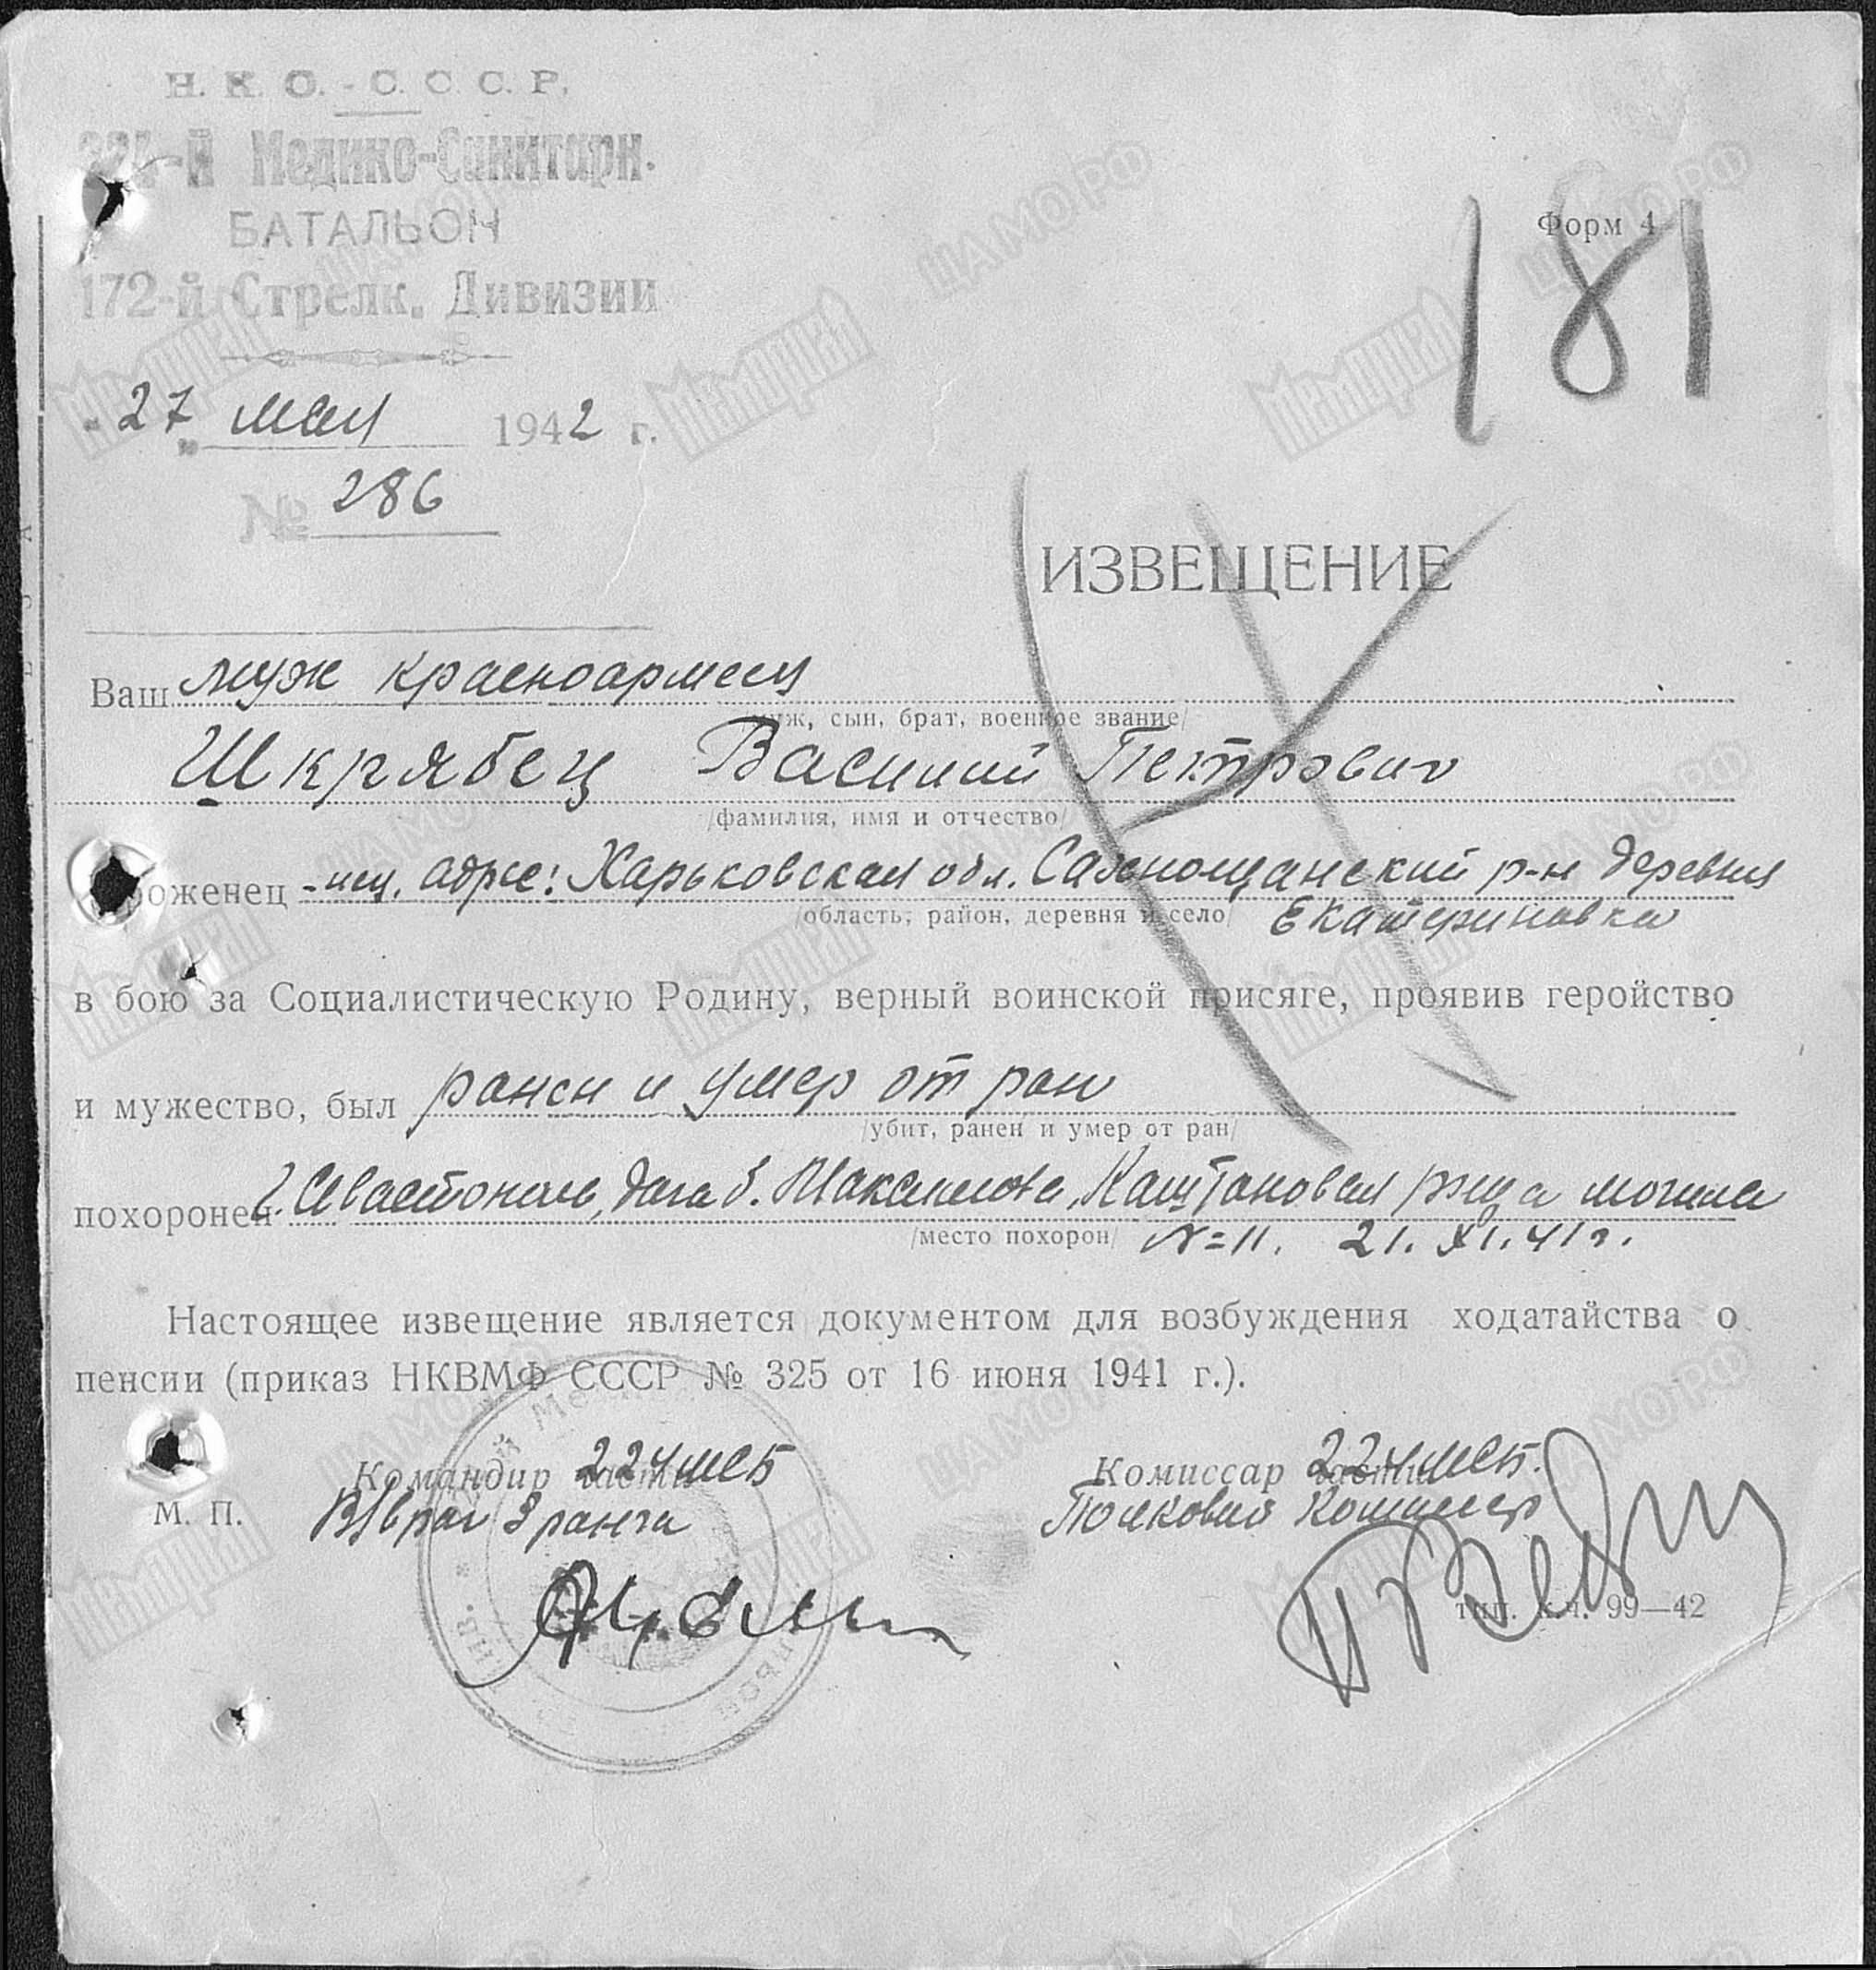 Н. К. О. - С. С. С. Р.
-й Медико-Санитарн.
БАТАЛЬОН
172-й Стрелк. Дивизии
Форм 4
181
"27" мая 1942 г.
№ 286
ИЗВЕЩЕНИЕ
Ваш муж красноармеец
муж, сын, брат, военное звание/
Шкрябец Василий Петрович
/фамилия, имя и отчество/
роженец адрес: Харьковская обл. Сахнощанский р-н деревня
/область, район, деревня и село/ Екатериновка
в бою за Социалистическую Родину, верный воинской присяге, проявив геройство
и мужество, был ранен и умер от ран
/убит, ранен и умер от ран/
похоронен г. Севастополь, дача б. Максимова, Каштановая роща могила
/место похорон/ N=11. 21. XI. 41 г.
Настоящее извещение является документом для возбуждения ходатайства о
пенсии (приказ НКВМФ СССР № 325 от 16 июня 1941 г.).
Командир части 224 МСБ Комиссар части 224 МСБ.
М. П. В/врач 3 ранга Полковой Комиссар
тип. в.ч. 99—42
ЦАМО РФ
Мемориал